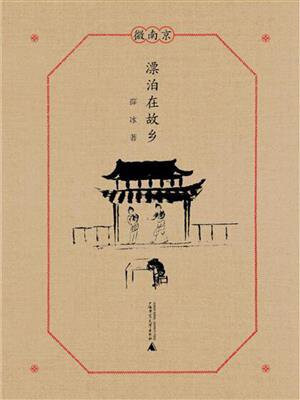 微南京
漂泊在故乡
薛冰 著
广西师范大学出版社